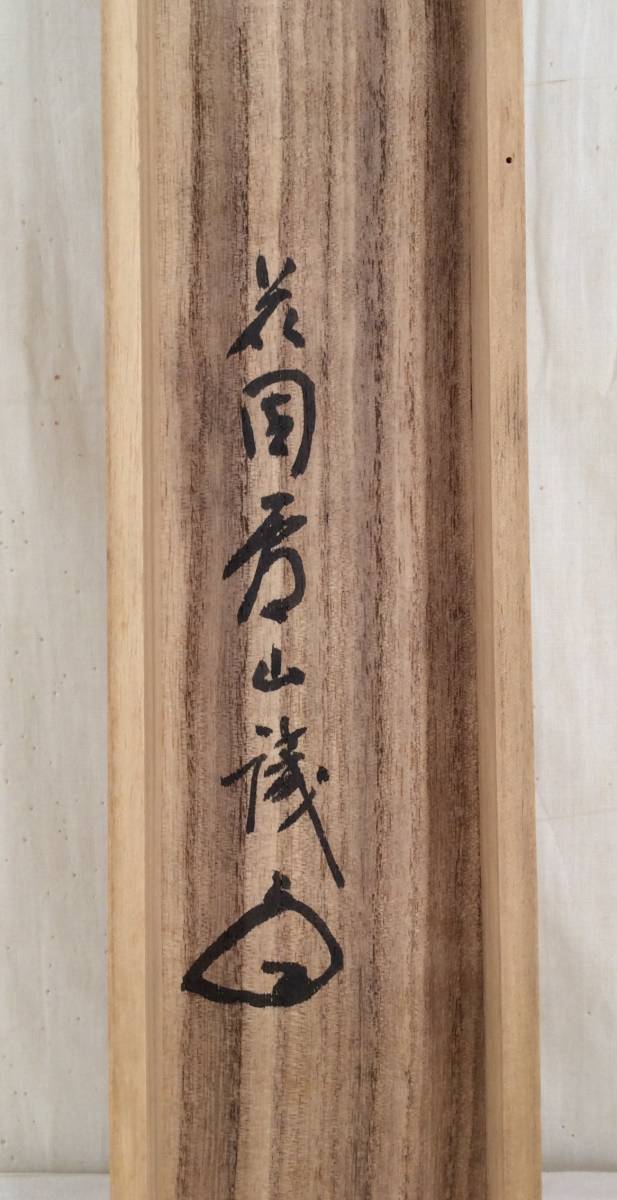 花園山識